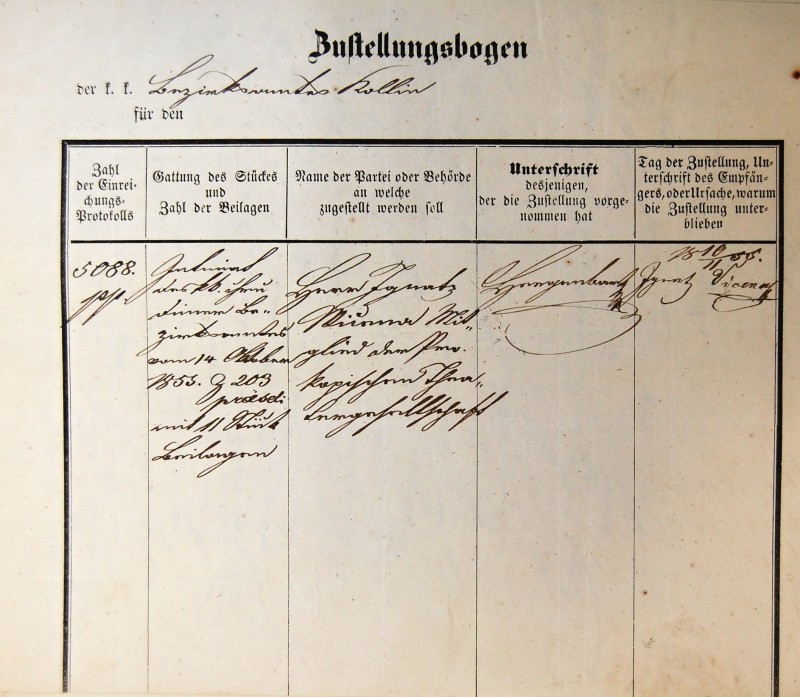 Zustellungsbogen
der k. k. Bezirksamtes Kollin
für den
Zahl
der Einrei-
chungs-
Protokolls
Gattung des Stückes
und
Zahl der Beilagen
Name der Partei oder Behörde
an welche
zugestellt werden soll
Unterschrift
desjenigen,
der die Zustellung vorge-
nommen hat
Tag der Zustellung, Un-
terschrift des Empfän-
gers, oder Ursache, warum
die Zustellung unter-
blieben
5088.
Intimat
des kk.
Be-
zirksamtes
vom 14 Oktober
1855. Z 203
mit 11 Stück
Beilagen
Herr Ignatz
Mit-
glied der Pro-
kopischen Thea-
tergesellschaft
18 10/11 55.
Ignatz